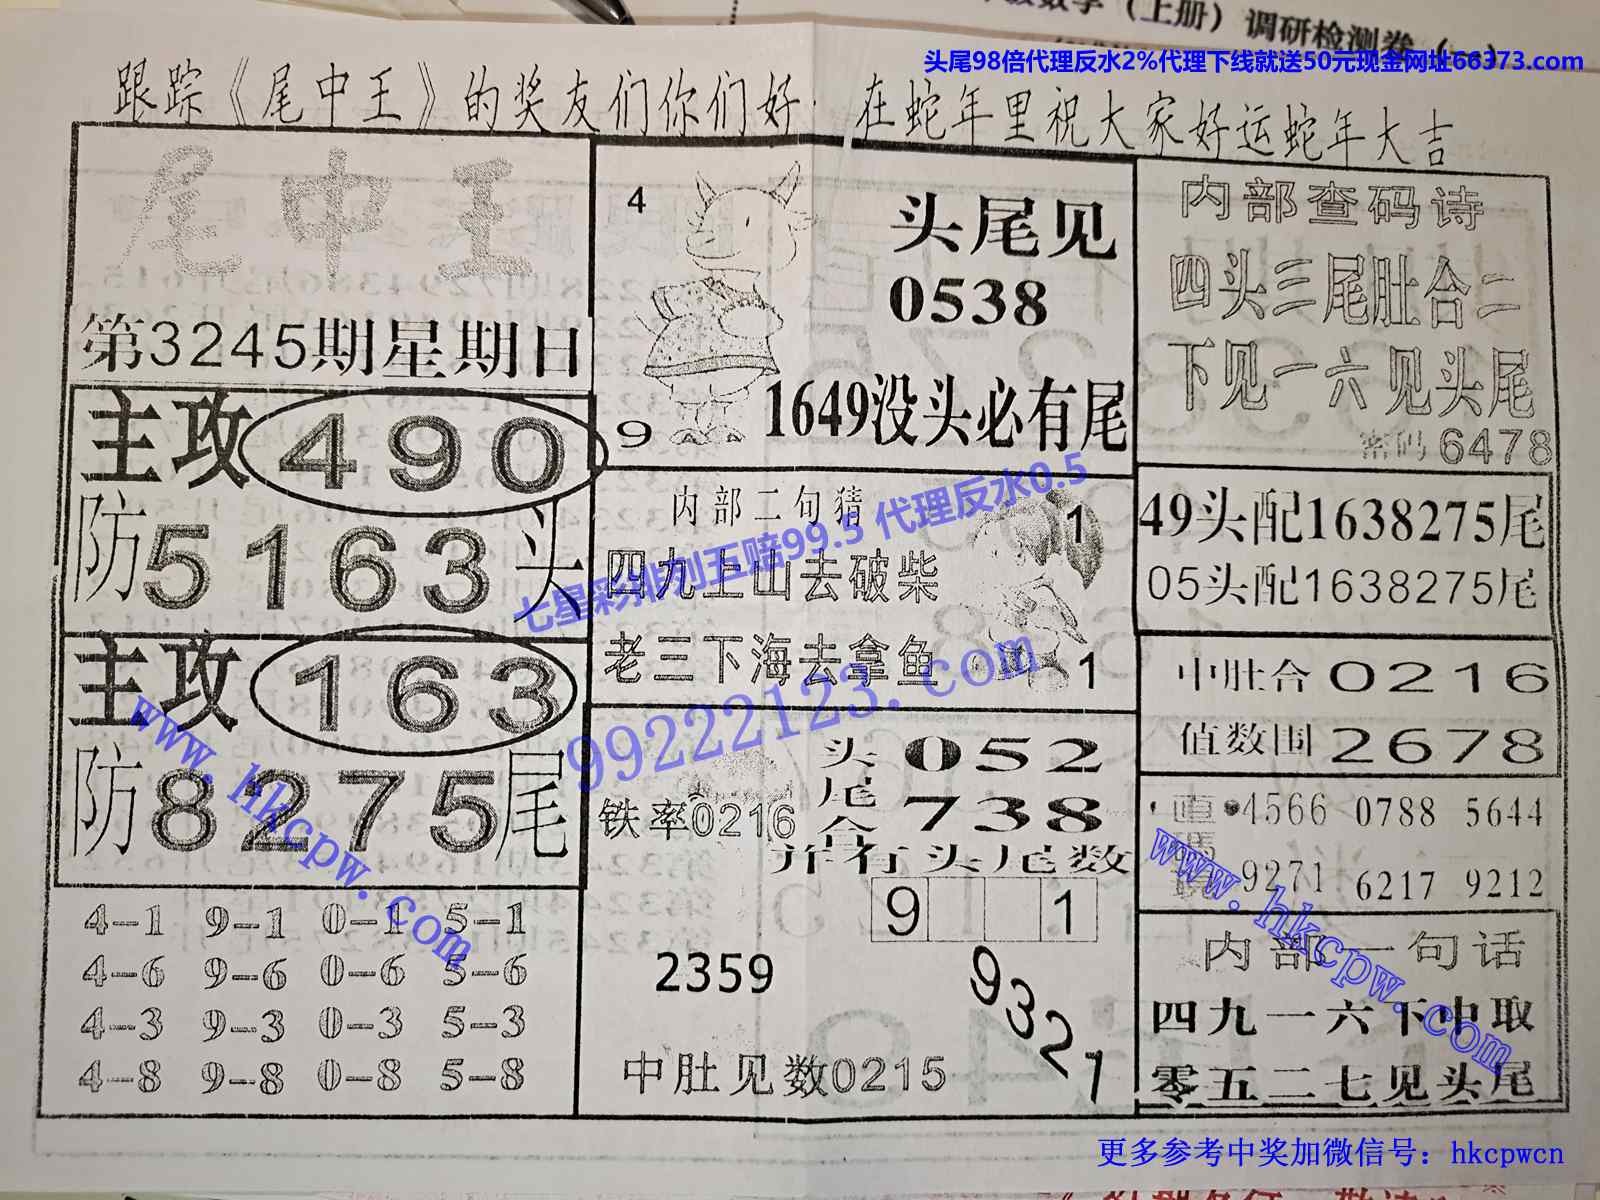 （上册）调研检测卷
头尾98倍代理反水2%代理下线就送50元现金网址66373.com
跟踪《尾中王》的奖友们你们好 在蛇年里祝大家好运蛇年大吉
尾中王
第3245期星期日
主攻490
防5163头
主攻163
防8275尾
4-1 9-1 0-1 5-1
4-6 9-6 0-6 5-6
4-3 9-3 0-3 5-3
4-8 9-8 0-8 5-8
4
头尾见
0538
9
1649没头必有尾
内部二句猜
1
四九上山去破柴
老三下海去拿鱼
1
铁率0216
头尾合
052
738
并行头尾数
9 1
2359
9321
中肚见数0215
内部查码诗
四头三尾肚合二
下见一六见头尾
密码6478
49头配1638275尾
05头配1638275尾
中肚合0216
值数围2678
4566 0788 5644
9271 6217 9212
内部一句话
四九一六下中取
零五二七见头尾
七星彩排列五赔99.5 代理反水0.5
99222123.com
www.hkcpw.com
www.hkcpw.com
更多参考中奖加微信号：hkcpwcn